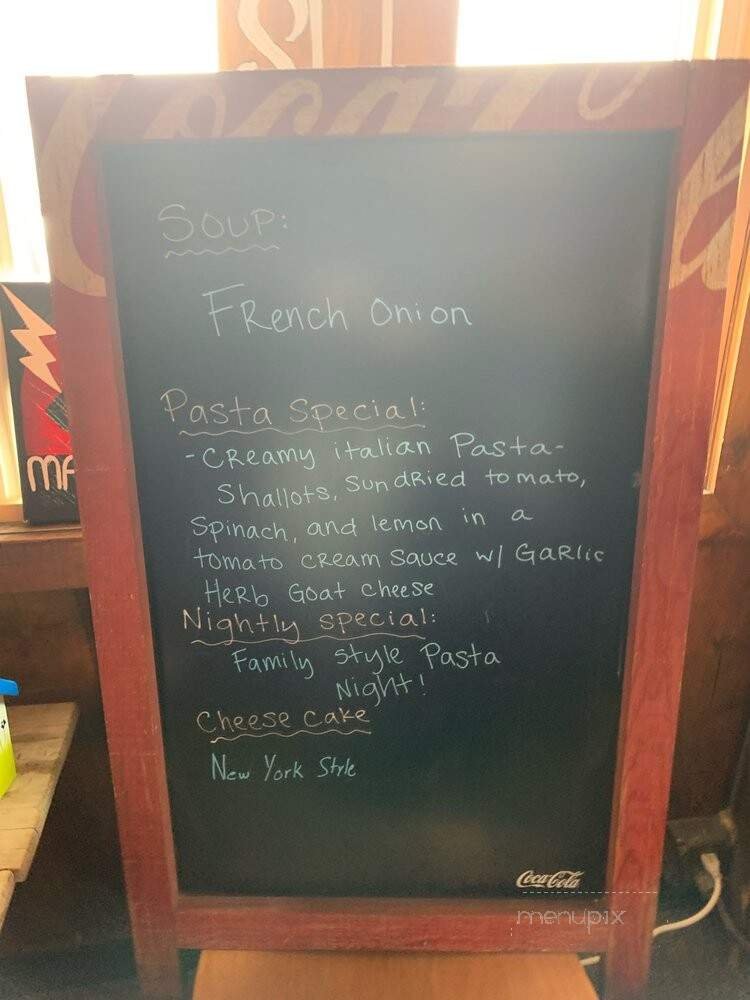 Coca-Cola
Soup:
French Onion
Pasta Special:
- Creamy italian Pasta -
Shallots, Sundried tomato,
Spinach, and lemon in a
tomato cream sauce w/ Garlic
Herb Goat cheese
Nightly special:
Family style Pasta
Night!
Cheese cake
New York Style
MA
Coca-Cola
menupix